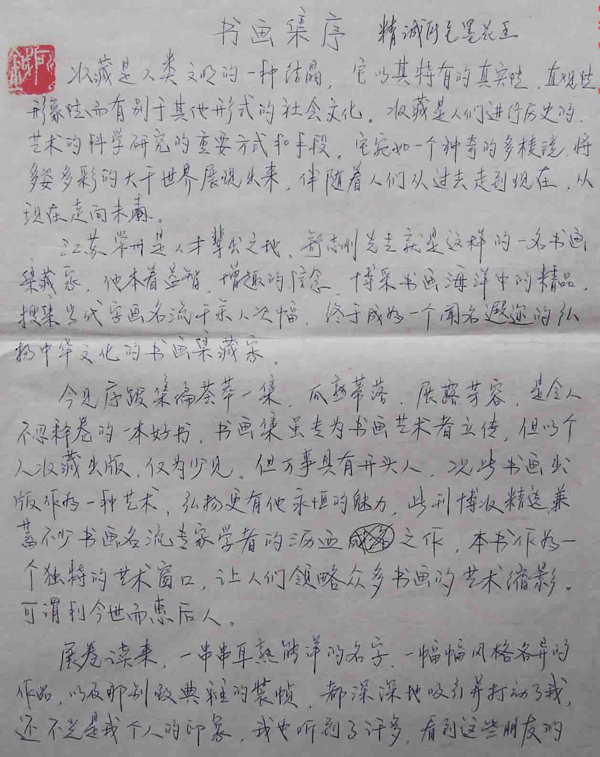 书画集序 精诚所至墨花至
收藏是人类文明的一种结晶，它以其特有的真实性、直观性
形象性而有别于其他形式的社会文化。收藏是人们进行历史的、
艺术的科学研究的重要方式和手段。它宛如一个神奇的多棱镜，将
多姿多彩的大千世界展现出来，伴随着人们从过去走到现在，从
现在走向未来。
江苏常州是人才辈出之地，先生就是这样的一名书画
集藏家，他本着益智、增趣的信念，博采书画海洋中的精品，
搜集当代字画名流千余人次幅，终于成为一个闻名遐迩的弘
扬中华文化的书画集藏家。
今见序跋集偏荟萃一集，瓜熟蒂落，展露芳容，是令人
不忍释卷的一本好书，书画集虽专为书画艺术者立传，但以个
人收藏出版，仅为少见。但万事具有开头人，况此书画出
版作为一种艺术，弘扬更有他永恒的魅力，此刊博收精选，兼
蓄不少书画名流专家学者的沥血之作，本书作为一
个独特的艺术窗口，让人们领略众多书画的艺术缩影。
可谓利今世而惠后人。
展卷读来，一串串耳熟能详的名字，一幅幅风格各异的
作品，以及那别致典雅的装帧，都深深地吸引并打动了我，
还不光是我个人的印象，我也听到了许多，看到这些朋友的